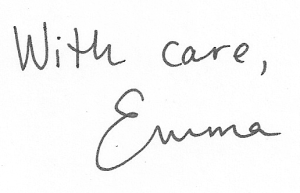 With care,
Emma